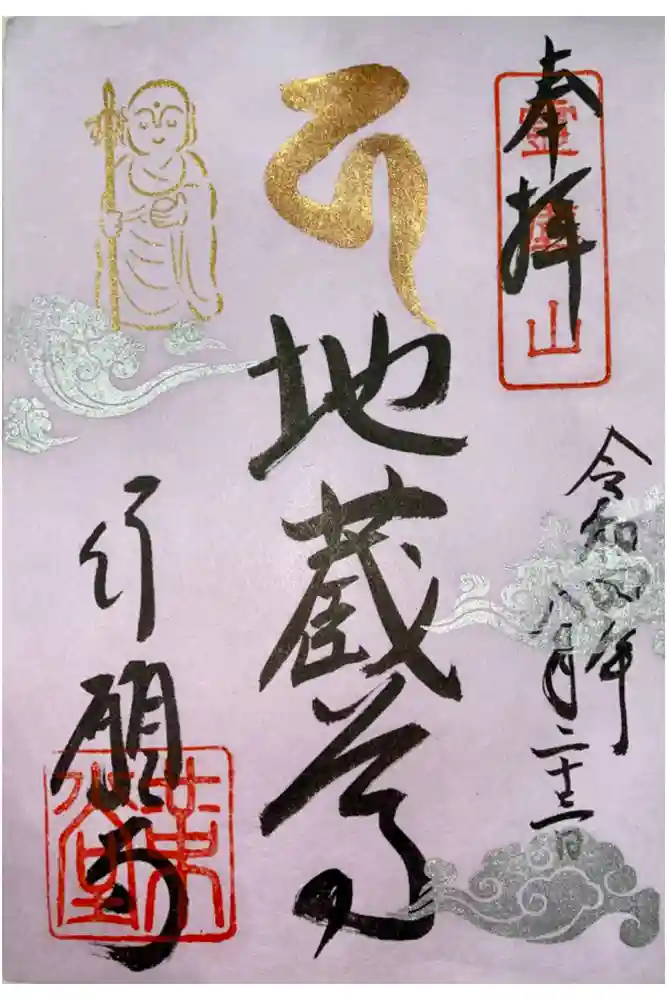 奉拝
地蔵尊
令和四年八月二十三日
行願寺
革堂